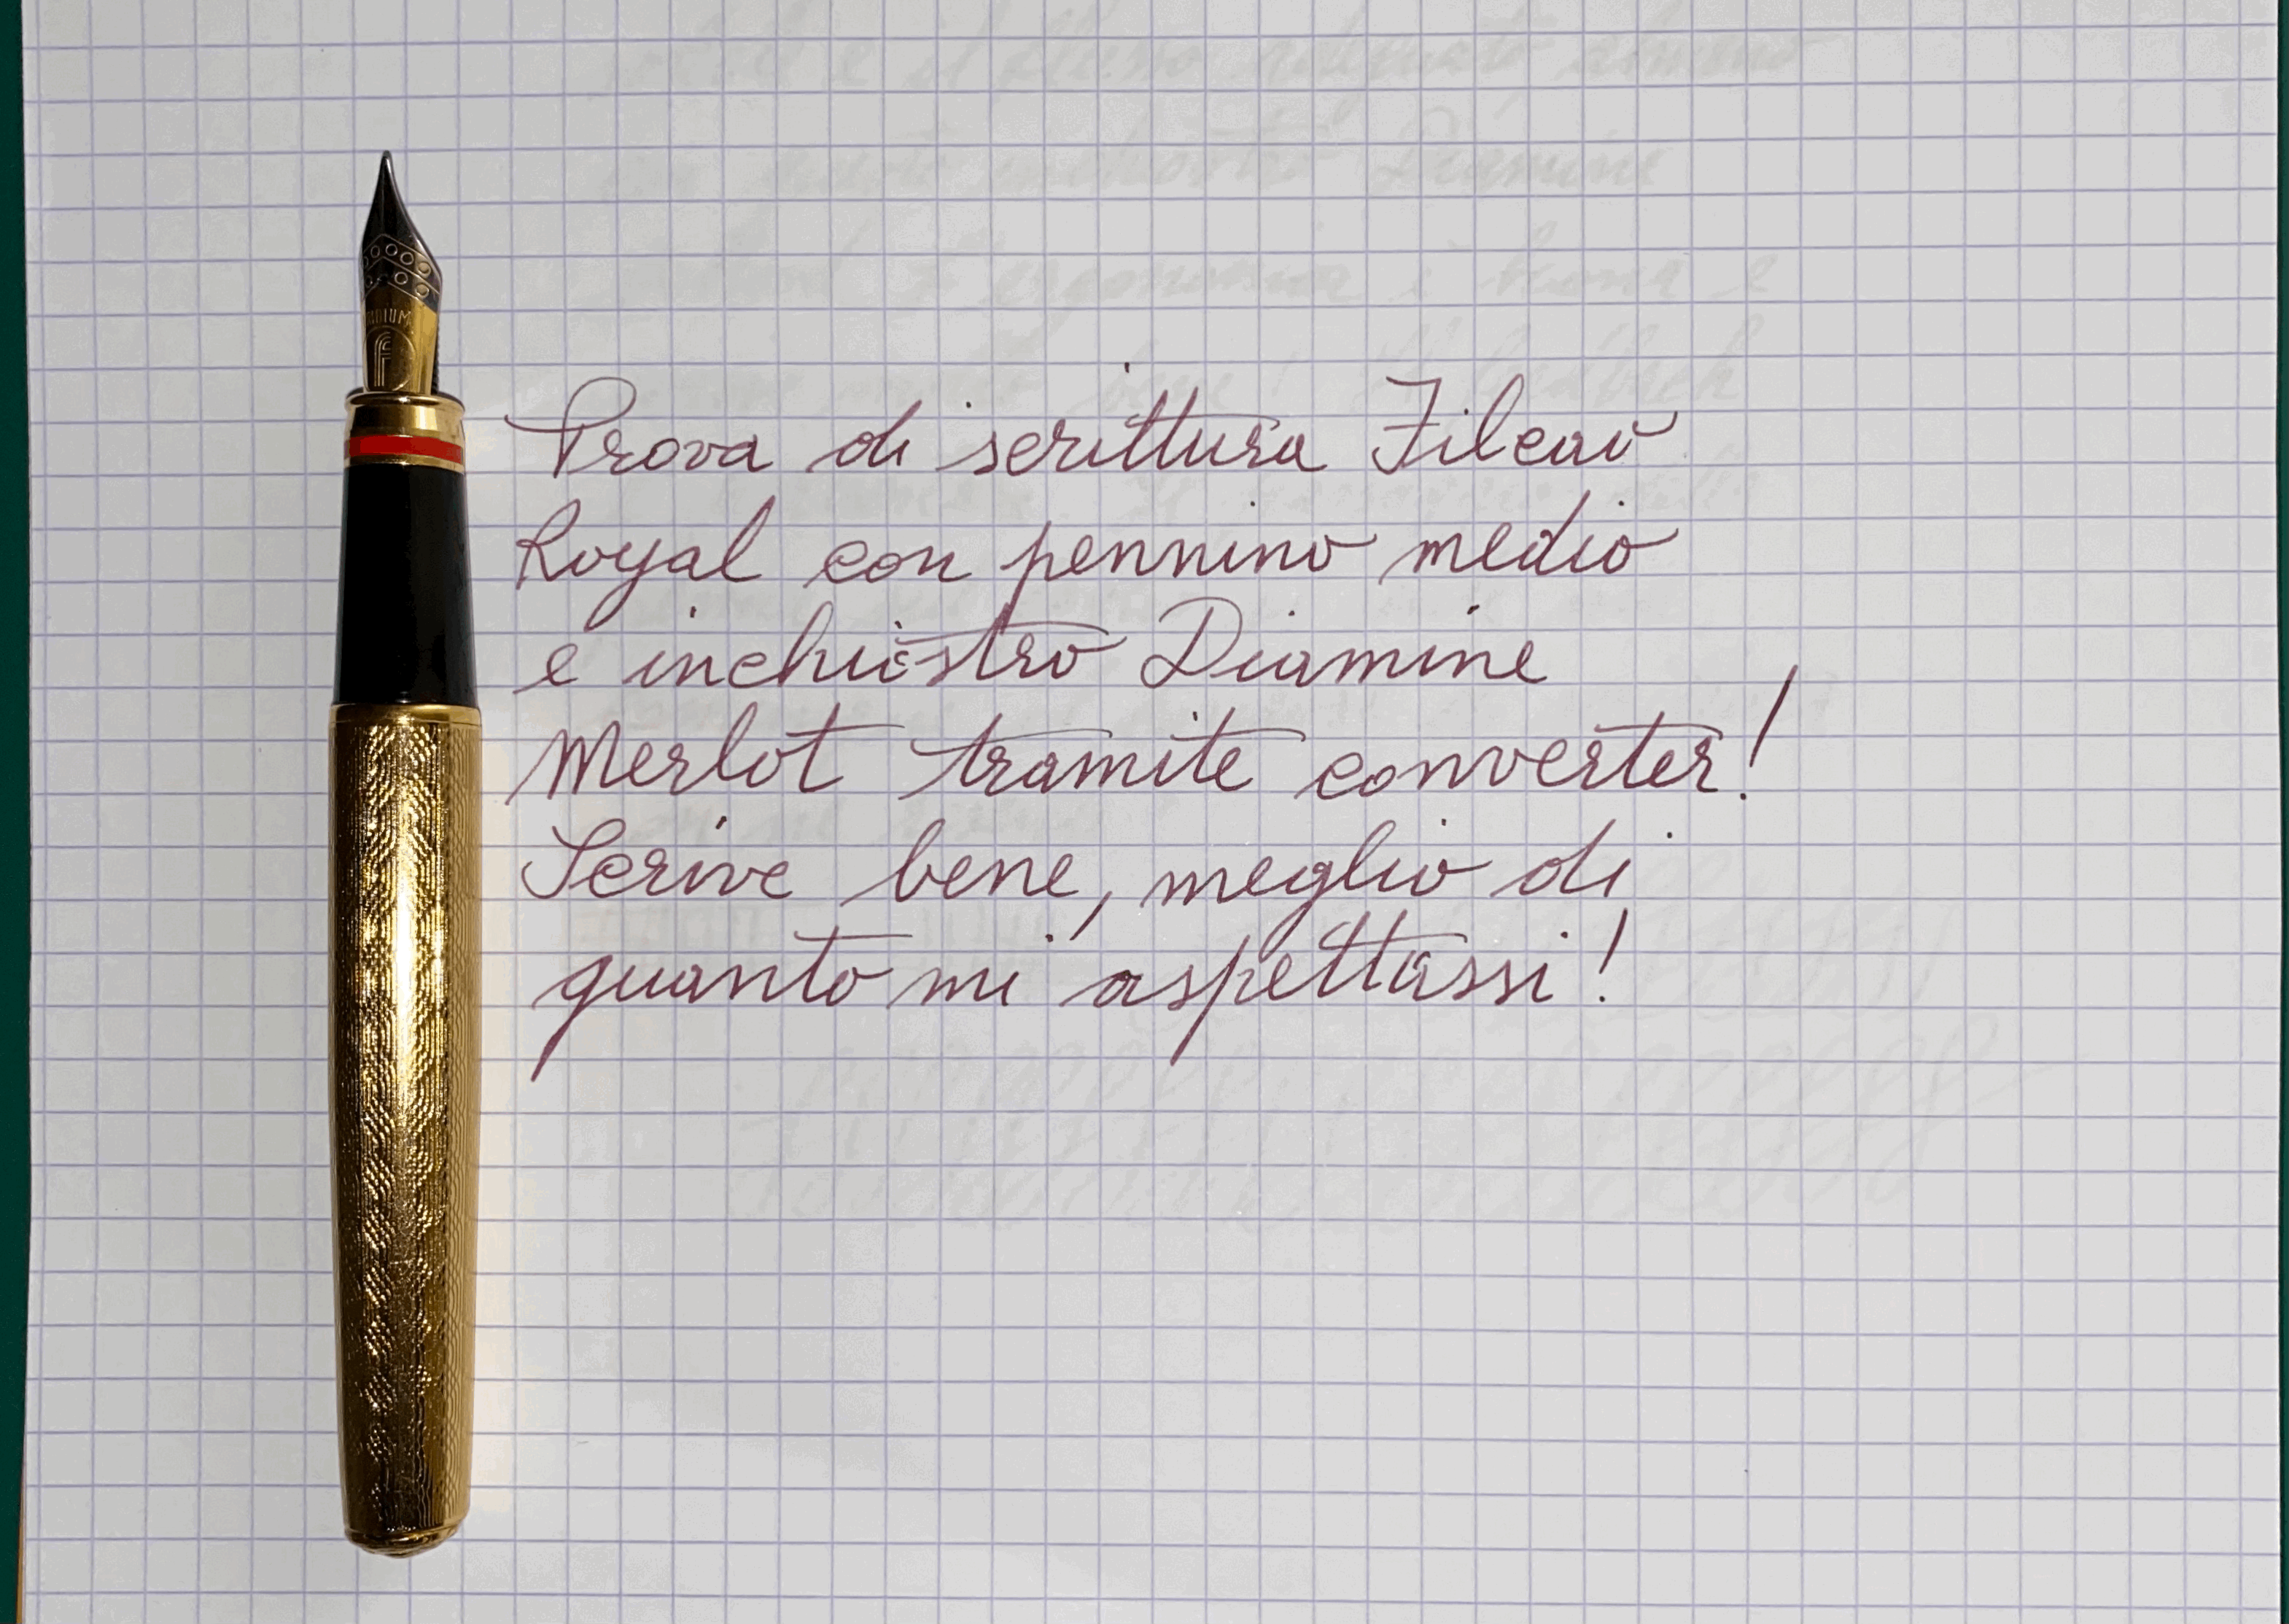 IRIDIUM
F
Prova di scrittura Filcao
Royal con pennino medio
e inchiostro Diamine
Merlot tramite converter!
Scrive bene, meglio di
quanto mi aspettassi!